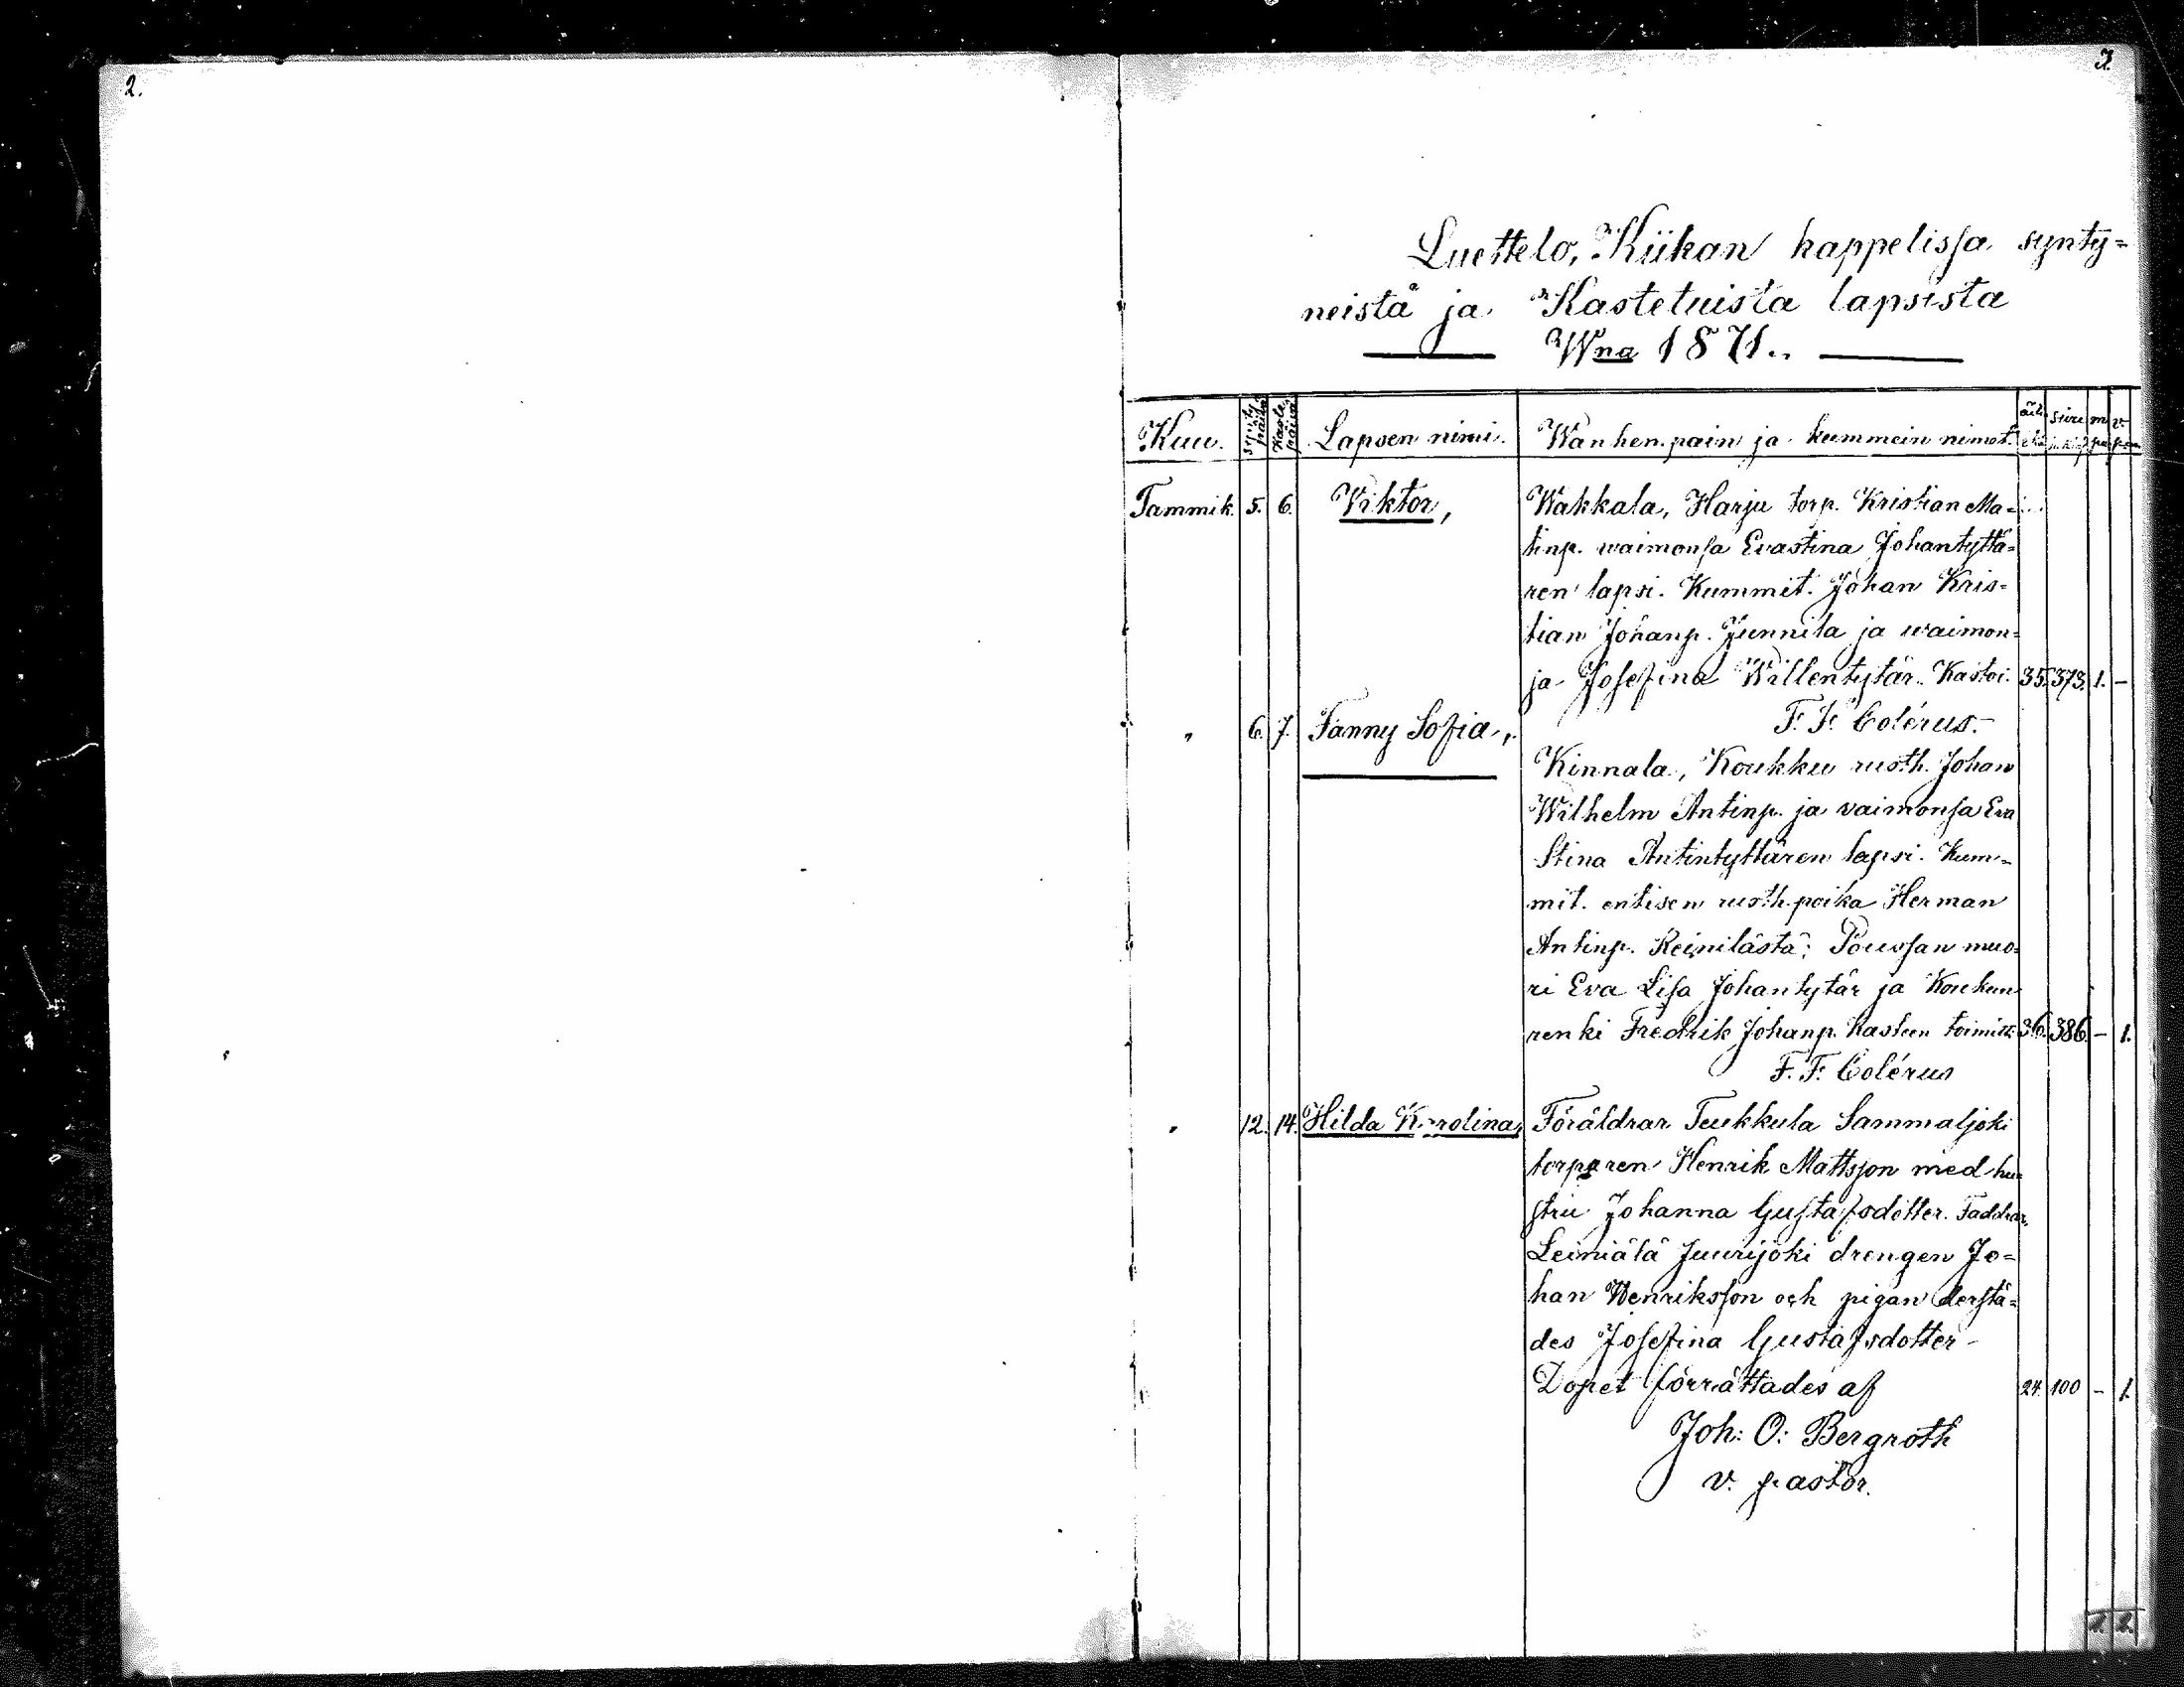 2.
3.
Luettelo, Kiikan kappelissa synty=
neistä ja Kastetuista lapsista
Wna 1871..
Kuu. Synty päivä Kaste päivä Lapsen nimi. Wanhenpain ja kummein nimet. äiti ikä sivu m. p. v. p.
Tammik. 5. 6. Viktor, Wakkala, Harju torp. Kristian Ma=
tinp. waimonsa Evastina Johantyttä=
ren lapsi. Kummit. Johan Kris=
tian Johanp. Junnila ja waimon=
sa Josefina Willentytär. Kastoi. 35. 373. 1. –
F. F. Colérus.–
" 6. 7. Fanny Sofia,
Kinnala, Koukku rusth. Johan
Wilhelm Antinp. ja vaimonsa Eva
Stina Antintyttären lapsi. Kum=
mit. entisen rusth. poika Herman
Antinp. Reinilästä; Poussan muo=
ri Eva Lisa Johantytär ja Koukun
renki Fredrik Johanp. kasteen toimitt. 36. 386. – 1.
F. F. Colérus
" 12. 14. Hilda Karolina, Föräldrar Teukkula Sammaljoki
torparen Henrik Mattsson med hu=
stru Johanna Gustafsdotter. Faddrar,
Leiniälä Juurijoki drengen Jo=
han Henriksson och pigan derstä=
des Josefina Gustafsdotter –
Dopet förrättades af 24. 100 – 1.
Joh: O: Bergroth
v. pastor.
1. 2.